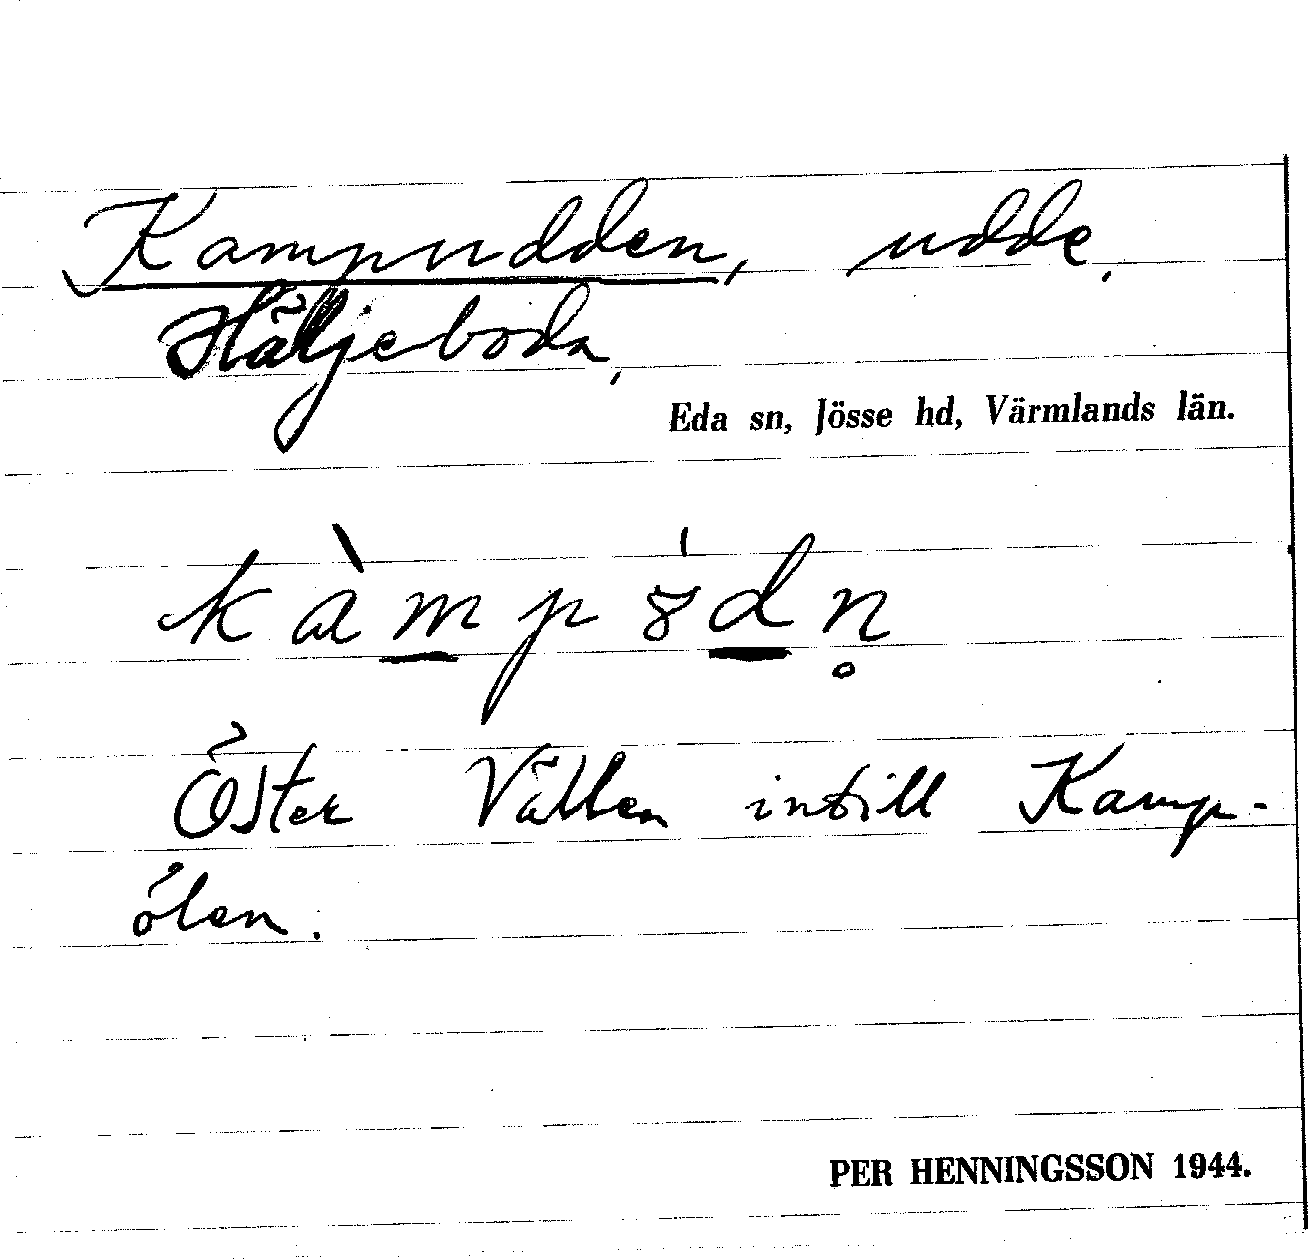 Kampudden, udde.
Häljeboda,
Eda sn, Jösse hd, Värmlands län.
kàmpȣ̍dn̥
Öster Vällen intill Kamp-
ölen.
PER HENNINGSSON 1944.